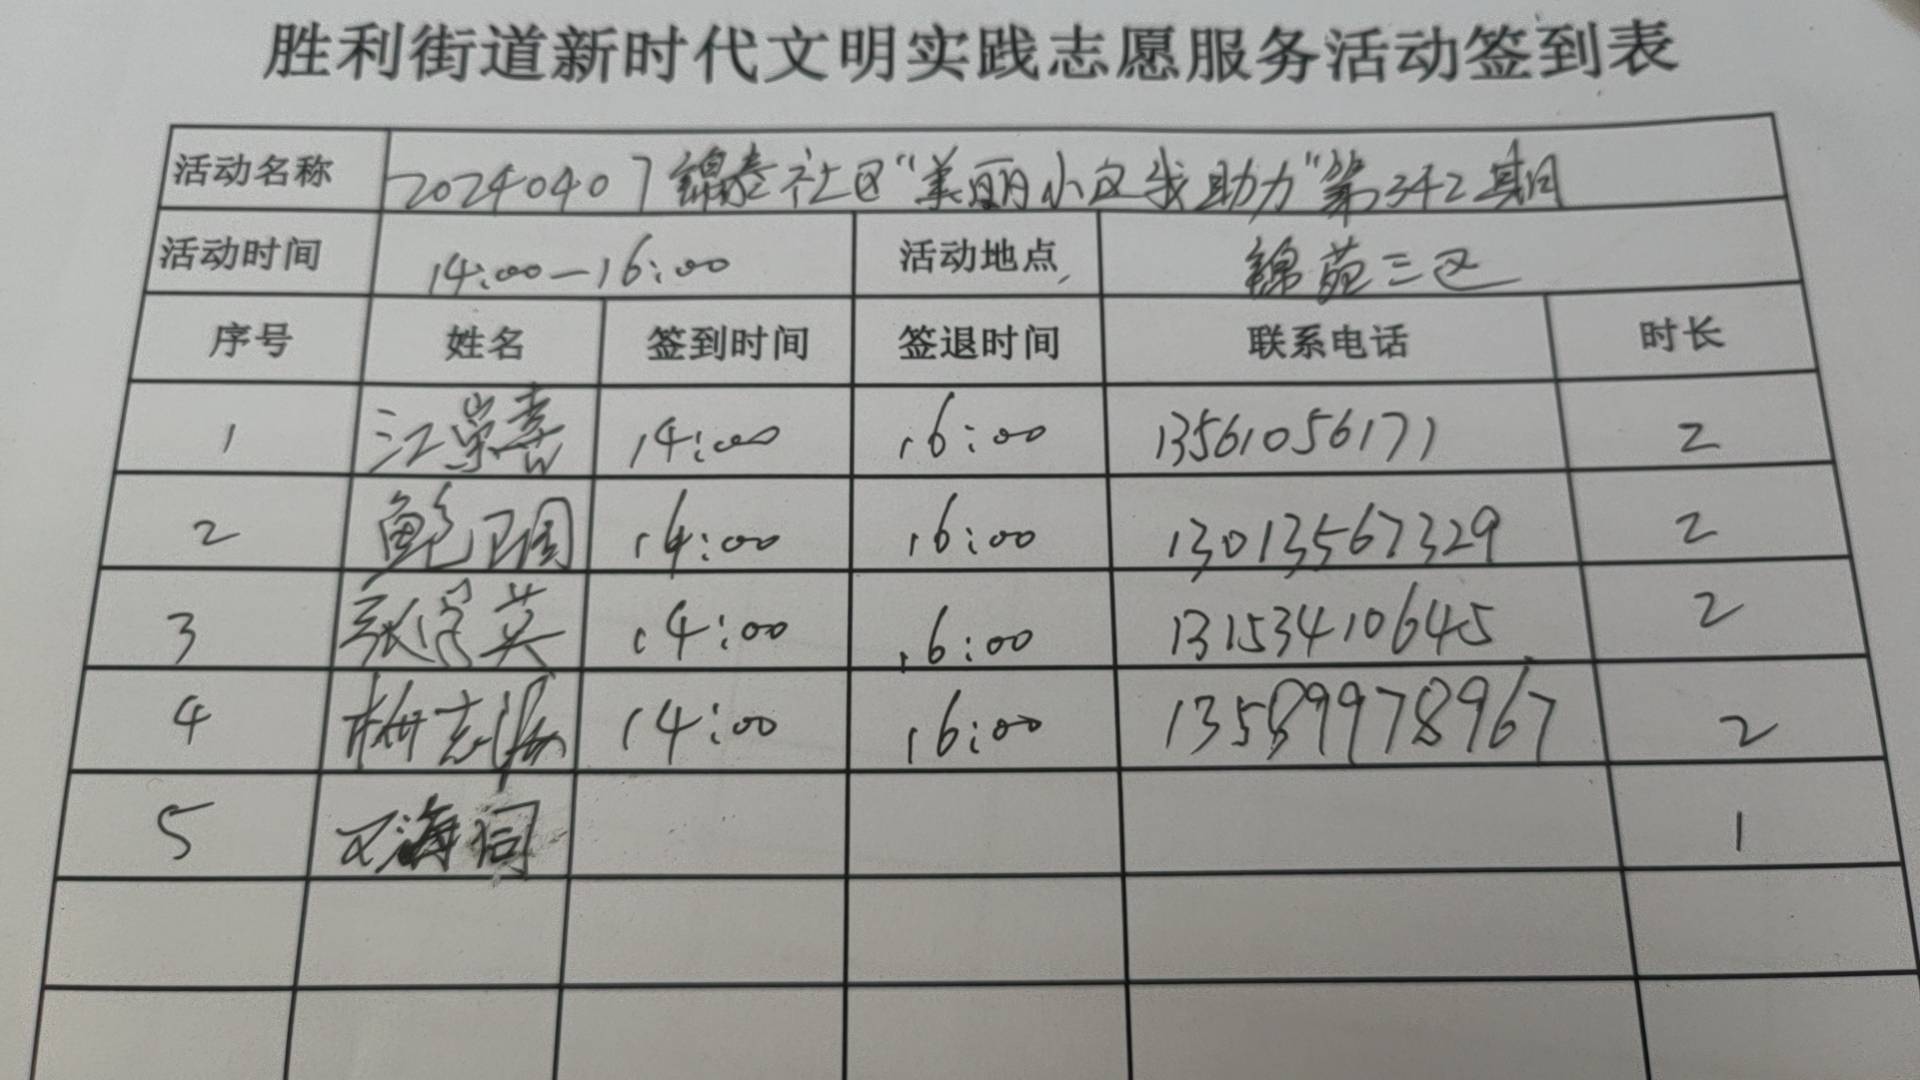 胜利街道新时代文明实践志愿服务活动签到表
活动名称 20240407锦泰社区“美丽小区我助力”第342期
活动时间 14:00—16:00 活动地点 锦苑三区
序号 姓名 签到时间 签退时间 联系电话 时长
1 江崇喜 14:00 16:00 13561056171 2
2 鲍卫国 14:00 16:00 13013567329 2
3 张学英 14:00 16:00 13153410645 2
4 14:00 16:00 13589978967 2
5 1